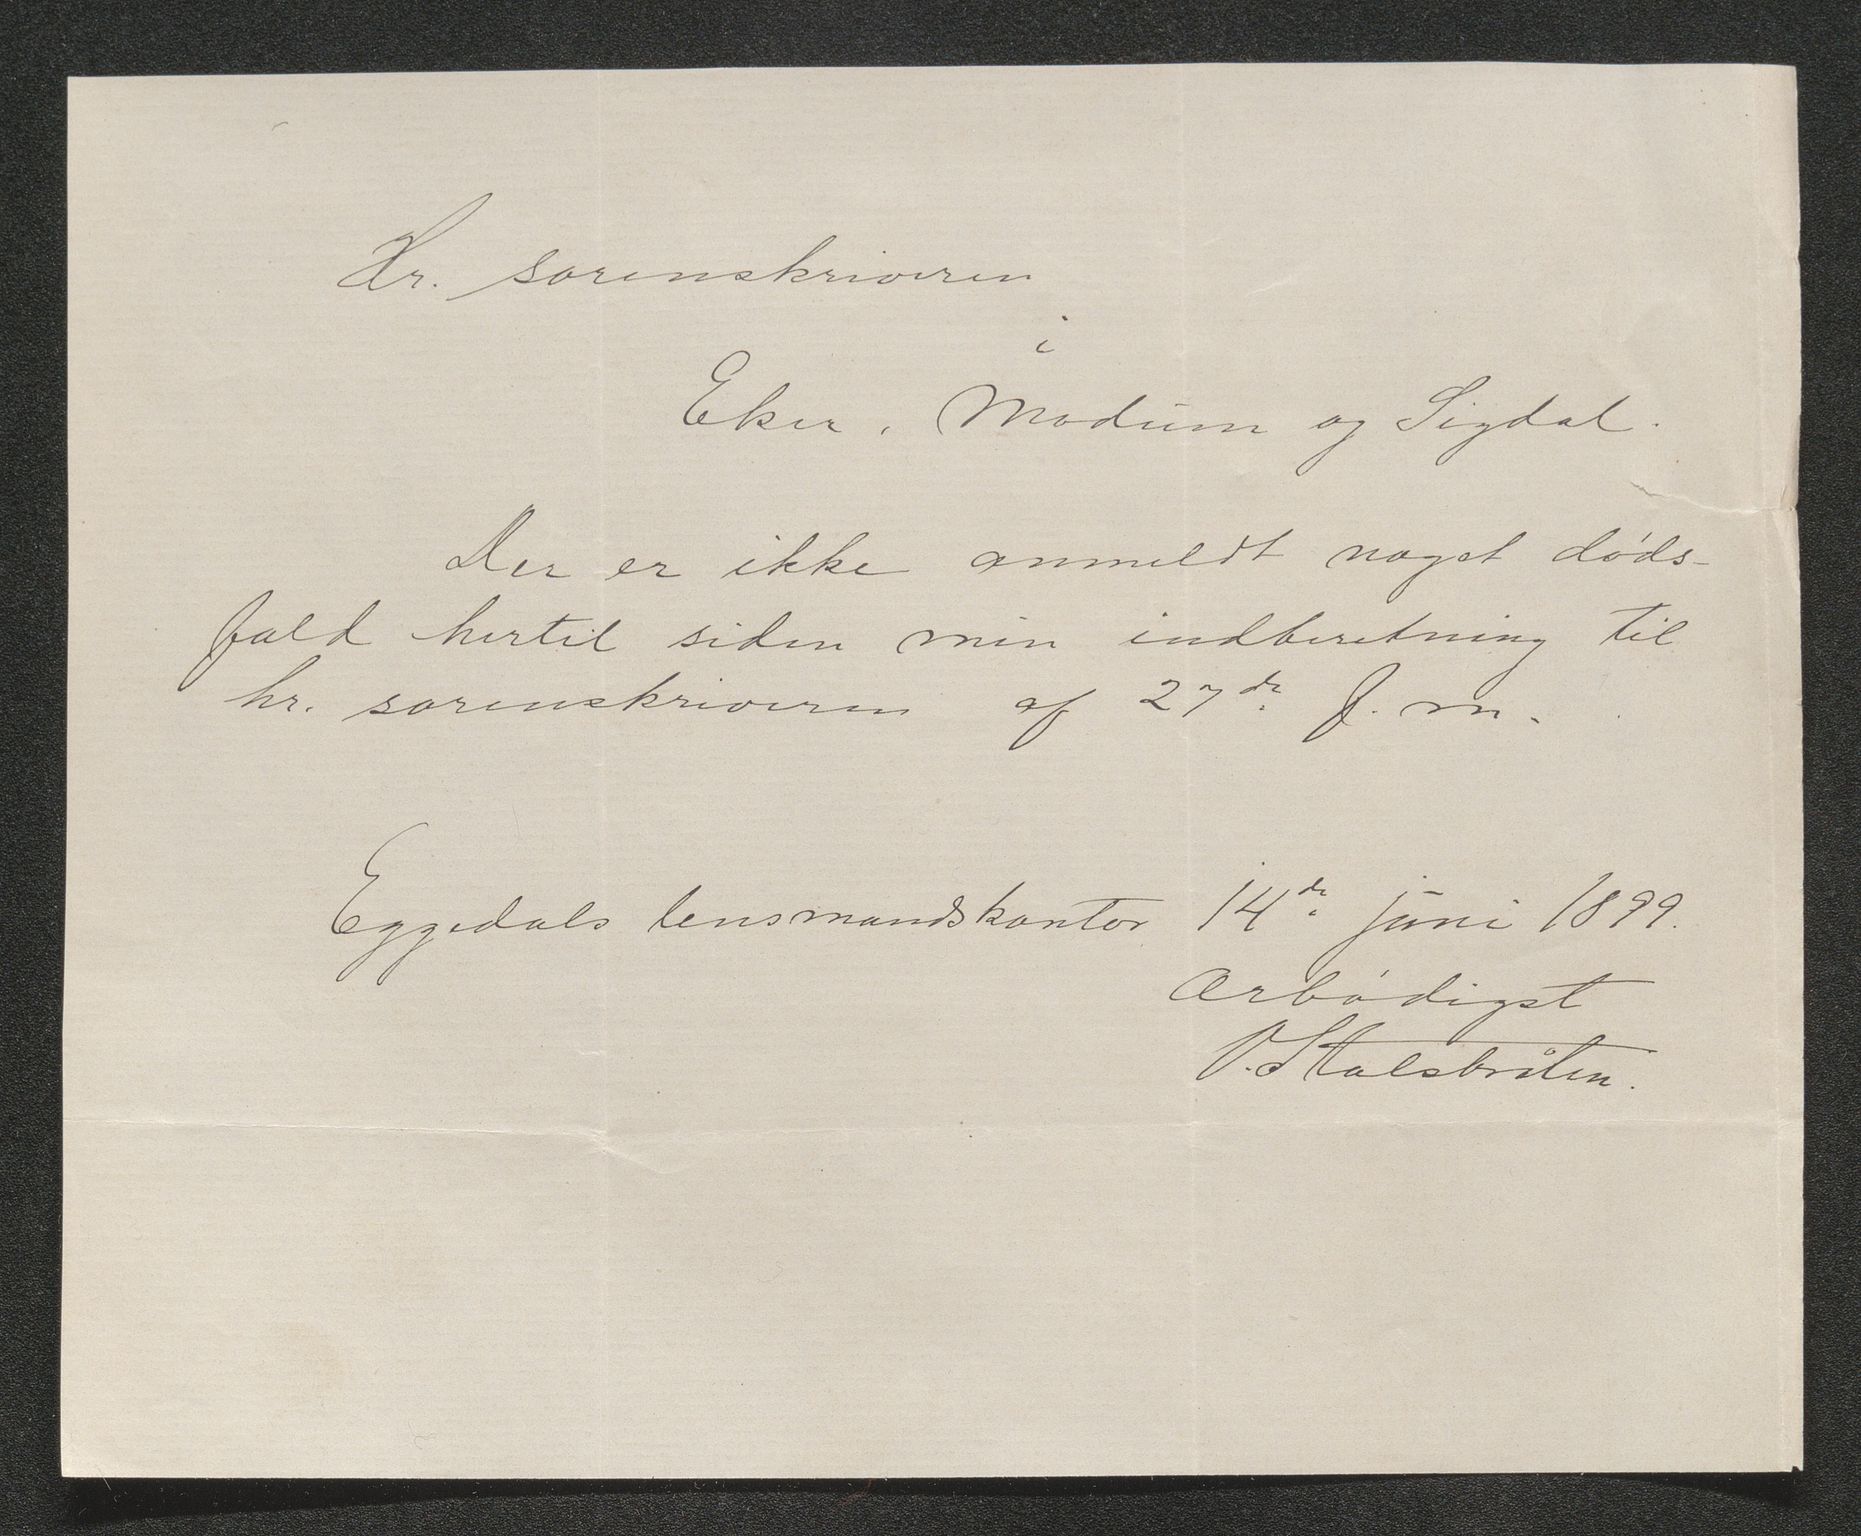 Hr. sorenskriveren
i
Eker, Modum og Sigdal.
Der er ikke anmeldt noget døds-
fald hertil siden min indberetning til
hr. sorenskriveren af 27de f. m.
Eggedals lensmandskontor 14de juni 1899.
Ærbødigst
O. Stalsbråten.